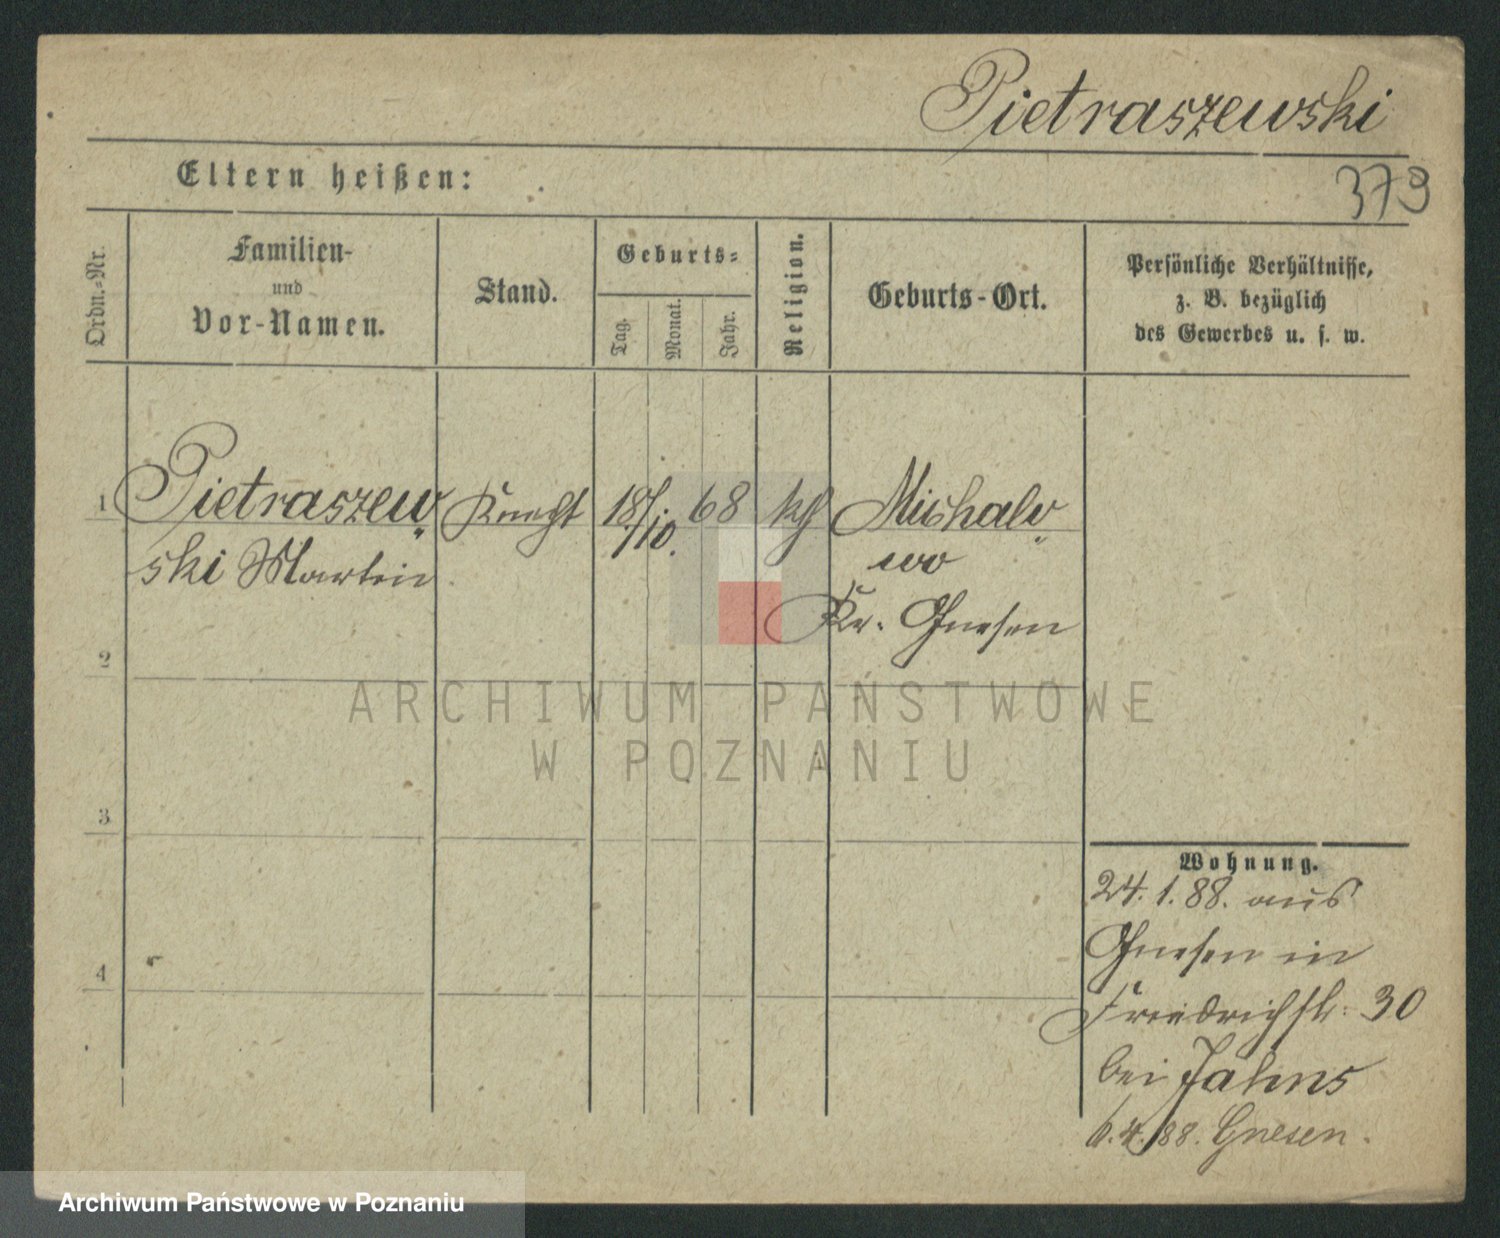 Pietraszewski
Eltern heißen:
379
Ordn.-Nr.
Familien-
und
Vor-Namen.
Stand.
Geburts-
Tag.
Monat.
Jahr.
Religion.
Geburts-Ort.
Persönliche Verhältnisse,
z. B. bezüglich
des Gewerbes u. s. w.
1 Pietraszew- Knecht 18/10. 68 kth Michalo-
ski Martin. wo
Kr. Gnesen
2
ARCHIWUM PAŃSTWOWE
W POZNANIU
3
Wohnung.
24. 1. 88. aus
Gnesen in
Friedrichstr. 30
bei Jahns
6. 4. 88. Gnesen.
4
Archiwum Państwowe w Poznaniu